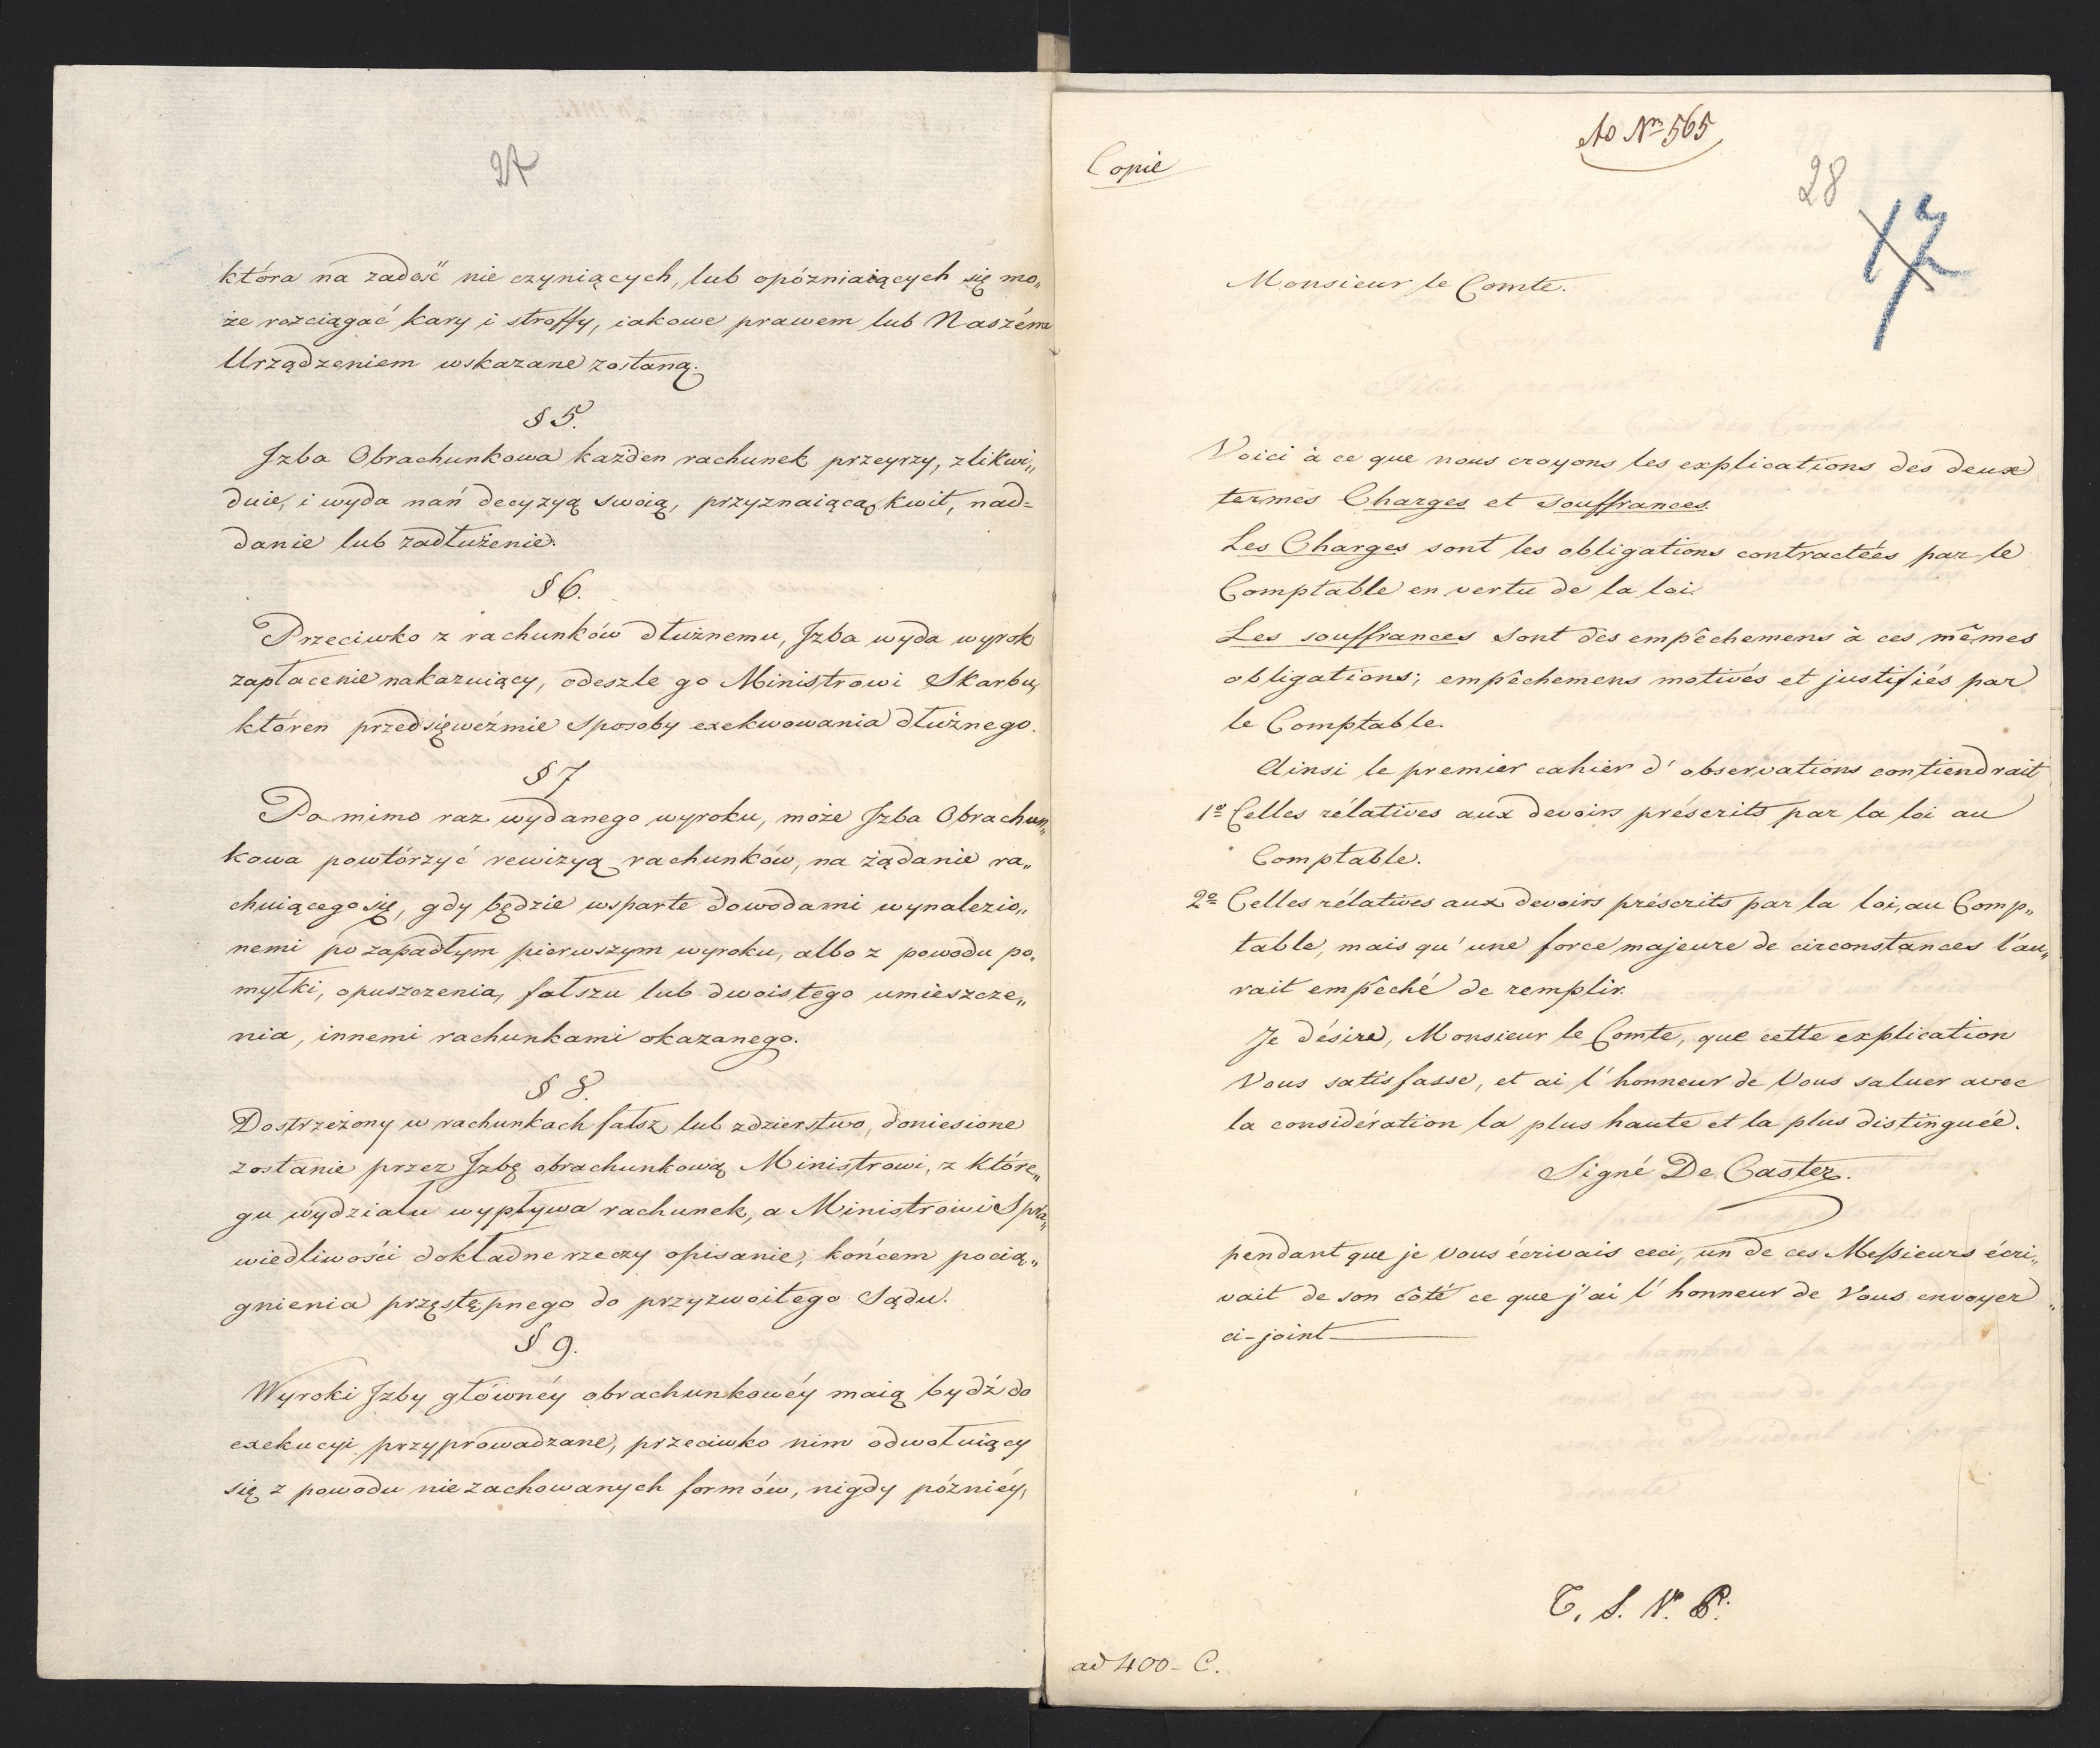 27
która na zadość nie czyniących, lub opóźniaiących się mo„
że rozciągać kary i stroffy, iakowe prawem lub Naszém
Urządzeniem wskazane zostaną.
§ 5.
Jzba Obrachunkowa każden rachunek przeyrzy, zlikwi„
duie, i wyda nań decyzyą swoią, przyznaiącą kwit, nad=
danie lub zadłużenie.
§ 6.
Przeciwko z rachunków dłużnemu, Jzba wyda wyrok
zapłacenie nakazuiący, odeszle go Ministrowi Skarbu,
któren przedsięweźmie sposoby exekwowania dłużnego.
§ 7
Po mimo raz wydanego wyroku, może Jzba Obrachun„
kowa powtórzyć rewizyą rachunków, na żądanie ra„
chuiącego się, gdy będzie wsparte dowodami wynalezio„
nemi po zapadłym pierwszym wyroku, albo z powodu po„
myłki, opuszczenia, fałszu lub dwoistego umieszcze„
nia, innemi rachunkami okazanego.
§ 8.
Dostrzeżony w rachunkach fałsz lub zdzierstwo, doniesione
zostanie przez Jzbę obrachunkową Ministrowi, z które„
gu wydziału wypływa rachunek, a Ministrowi Spra„
wiedliwości dokładne rzeczy opisanie, końcem pocią„
gnienia przęstępnego do przyzwoitego Sądu.
§ 9.
Wyroki Jzby głównéy obrachunkowéy maią bydź do
exekucyi przyprowadzane, przeciwko nim odwołuiący
się z powodu nie zachowanych formów, nigdy późniéy,
Ad Nm 565
Copie
28
17
Monsieur le Comte.
Voici à ce que nous croyons les explications des deux
termes Charges et souffrances.
Les Charges sont les obligations contractées par le
Comptable en vertu de la loi.
Les souffrances sont des empêchemens à ces mêmes
obligations; empêchemens motivés et justifiés par
le Comptable.
Ainsi le premier cahier d'observations contiendrait
1º Celles rélatives aux devoirs préscrits par la loi au
Comptable.
2º Celles rélatives aux devoirs préscrits par la loi, au Comp„
table, mais qu'une force majeure de circonstances l'au„
rait empêché de remplir.
Je désire, Monsieur le Comte, que cette explication
Vous satisfasse, et ai l'honneur de Vous saluer avec
la considération la plus haute et la plus distinguée.
Signé De Caster.
pendant que je vous écrivais ceci, un de ces Messieurs écri„
vait de son côté ce que j'ai l'honneur de Vous envoyer
ci-joint
T. S. V. P.
ad 400 - C.